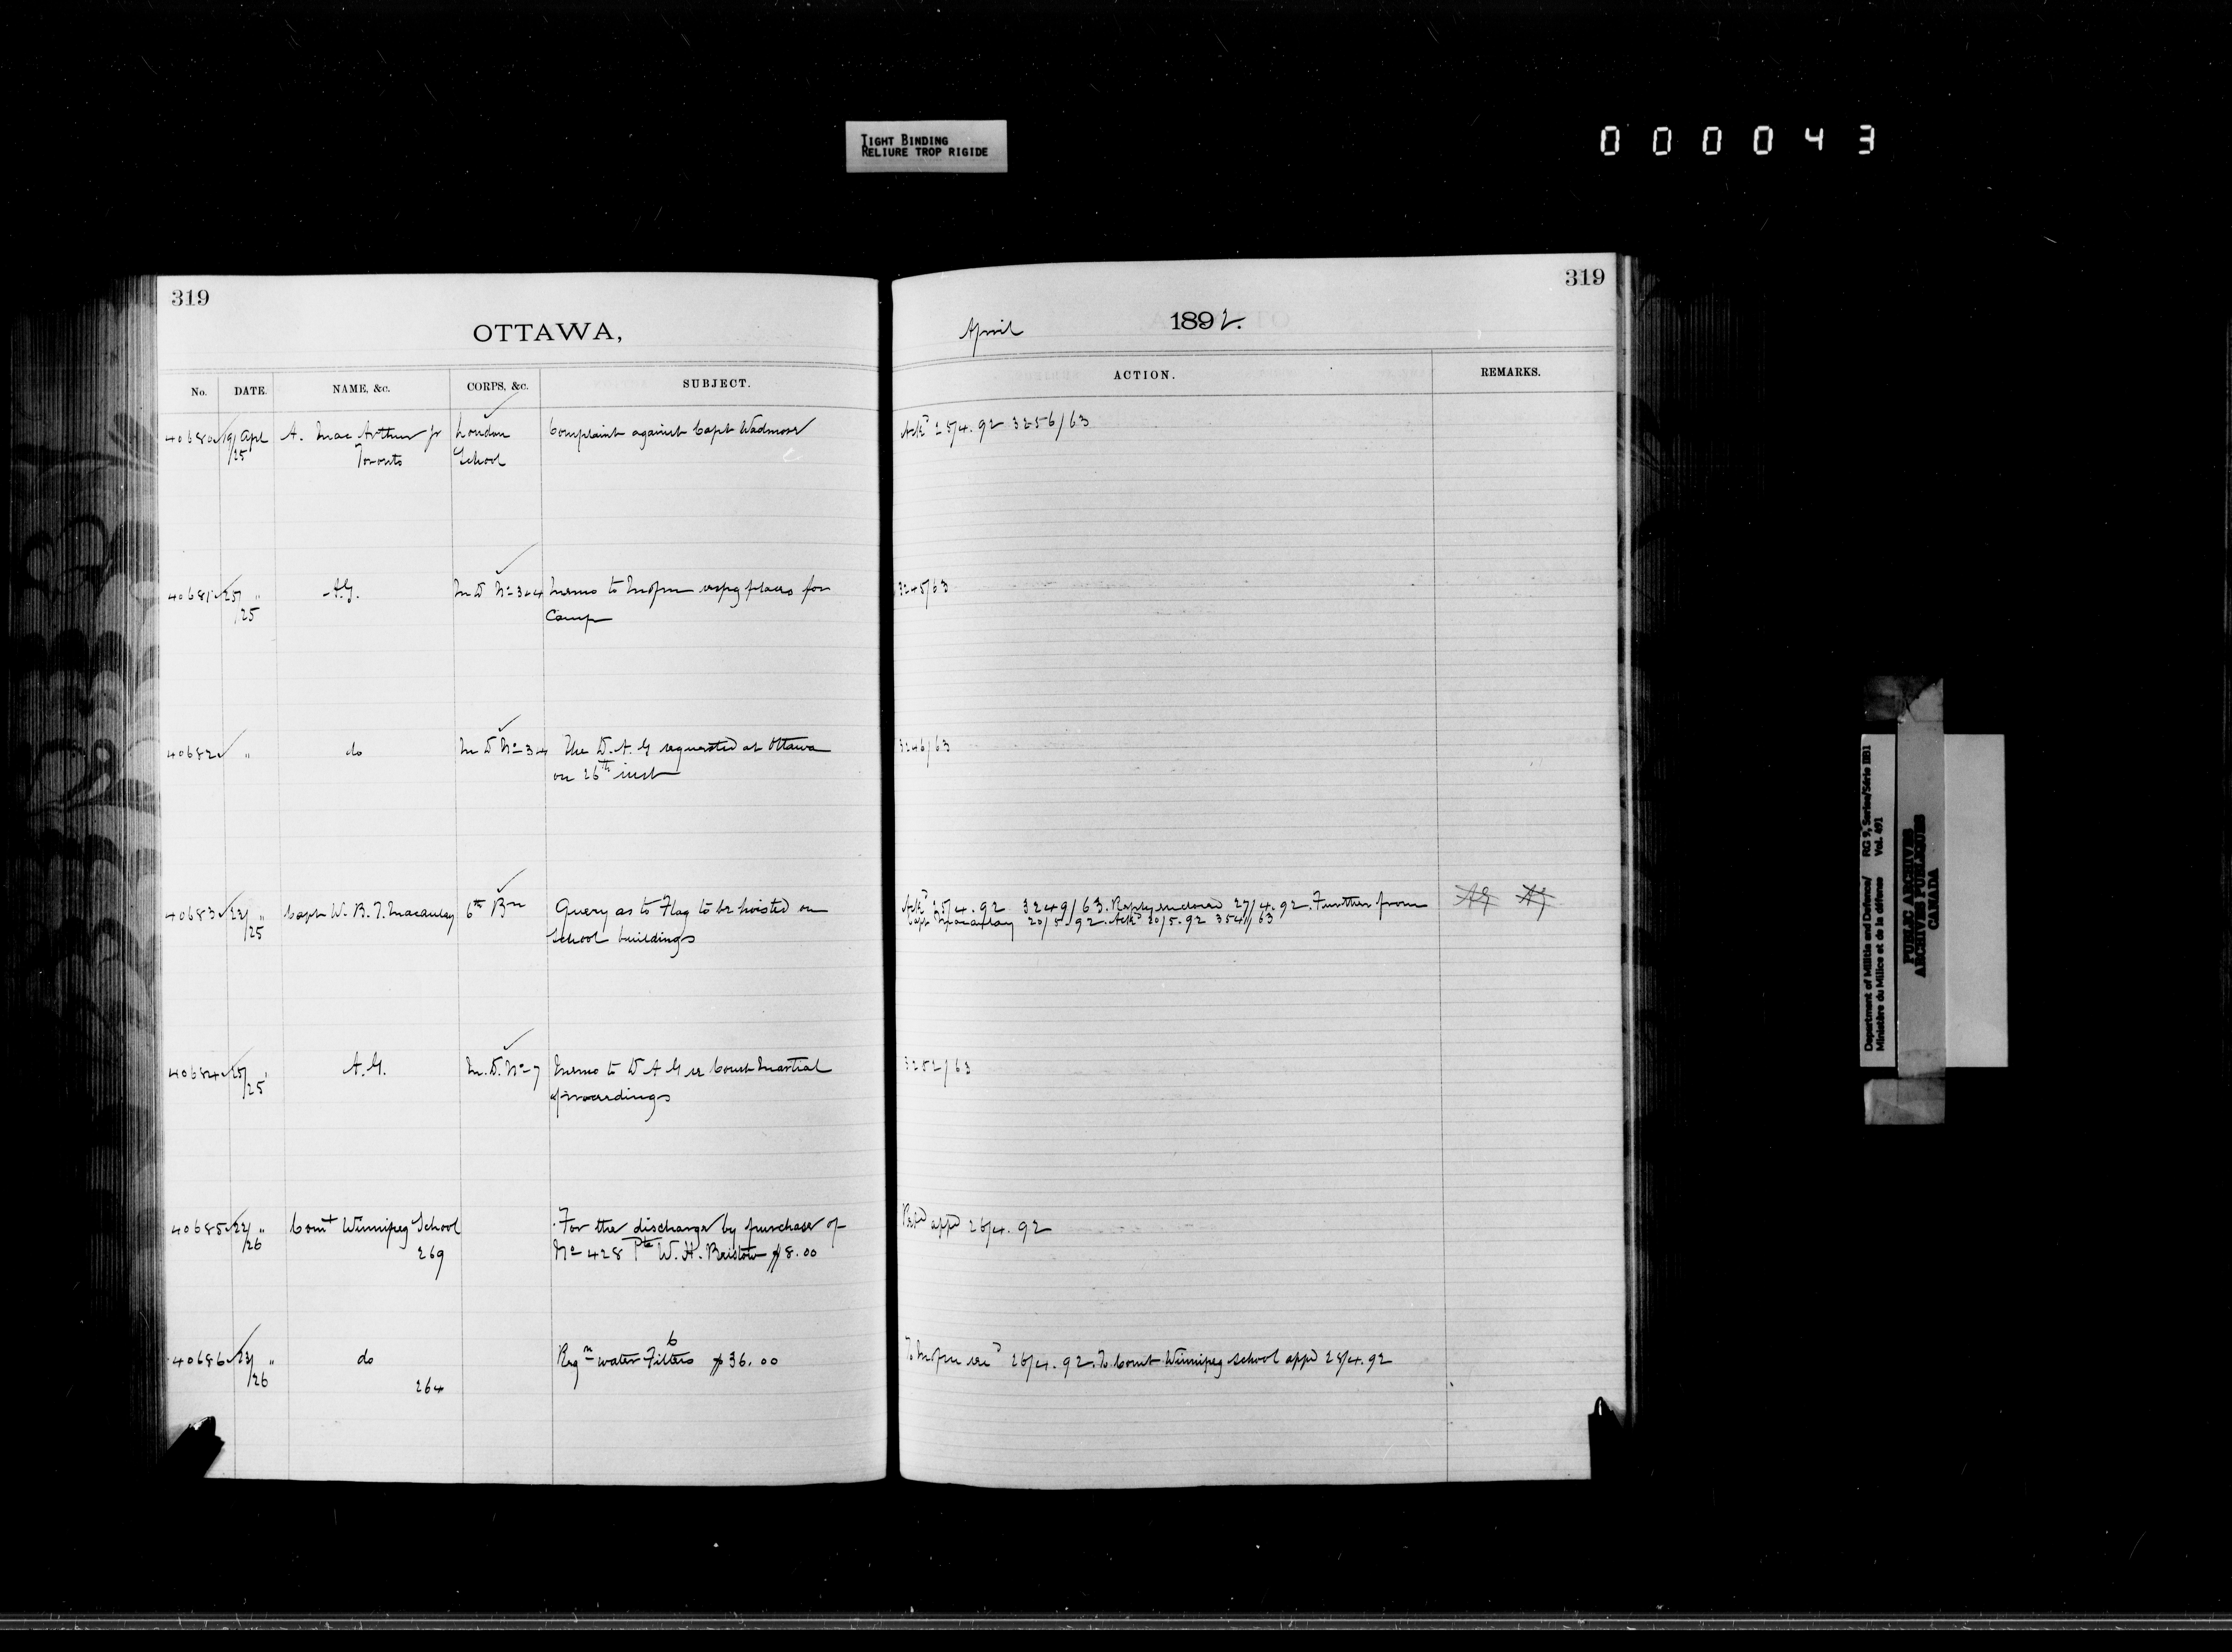 TIGHT BINDING
RELIURE TROP RIGIDE
000043
319
OTTAWA,
No. DATE. NAME, &c. CORPS, &c. SUBJECT.
40680 19/ Apl A. Mac Arthur Jr London Complaint against Capt Wadmore
/25 Toronto School
40681 25/ " A.G. M D No 3 & 4 Memo to places for
/25 Camp
40682 " do M D No 3 & 4 The D. A. G requested at Ottawa
on 26th inst
40683 22/ " Capt W. B. T. Macaulay 6th Bn Query as to Flag to be hoisted on
/25 School buildings
40684 25/ " A.G. M. D. No 7 Memo to D A G re Court Martial
/25 proceedings
40685 22/ " Comt Winnipeg School For the discharge by purchase of
/26 269 No 428 Pte W. H. Bristow $8.00
40686 22/ " do Regn water Filters 6 $36.00
/26 264
319
April 1892.
ACTION. REMARKS.
Ackd 25/4.92 3256/63
3245/63
3246/63
Ackd 25/4.92 3249/63. Reply enclosed 27/4.92. Further from AG AG
Capt Macaulay 20/5/92. Ackd 20/5.92 3541/63
3252/63
appd 26/4.92
To 26/4.92. To Comt Winnipeg School appd 28/4.92
Department of Militia and Defence/ RG 9, Series/Série IIB1
Ministère du Milice et de la défense Vol. 491
PUBLIC ARCHIVES
ARCHIVES PUBLIQUES
CANADA